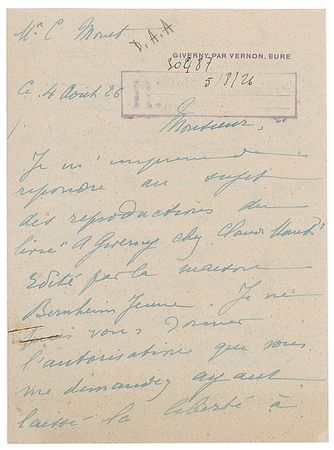 Mr C. Monet
D.A.A
GIVERNY PAR VERNON, EURE
30987
Ce 4 Août 26
5/8/26
Monsieur,
Je m'empresse de
repondre au sujet
des reproductions du
livre "A Giverny chez Claude Monet"
Edité par la maison
Bernheim Jeune. Je ne
puis vous donner
l'autorisation que vous
me demandez ayant
laissé la liberté à